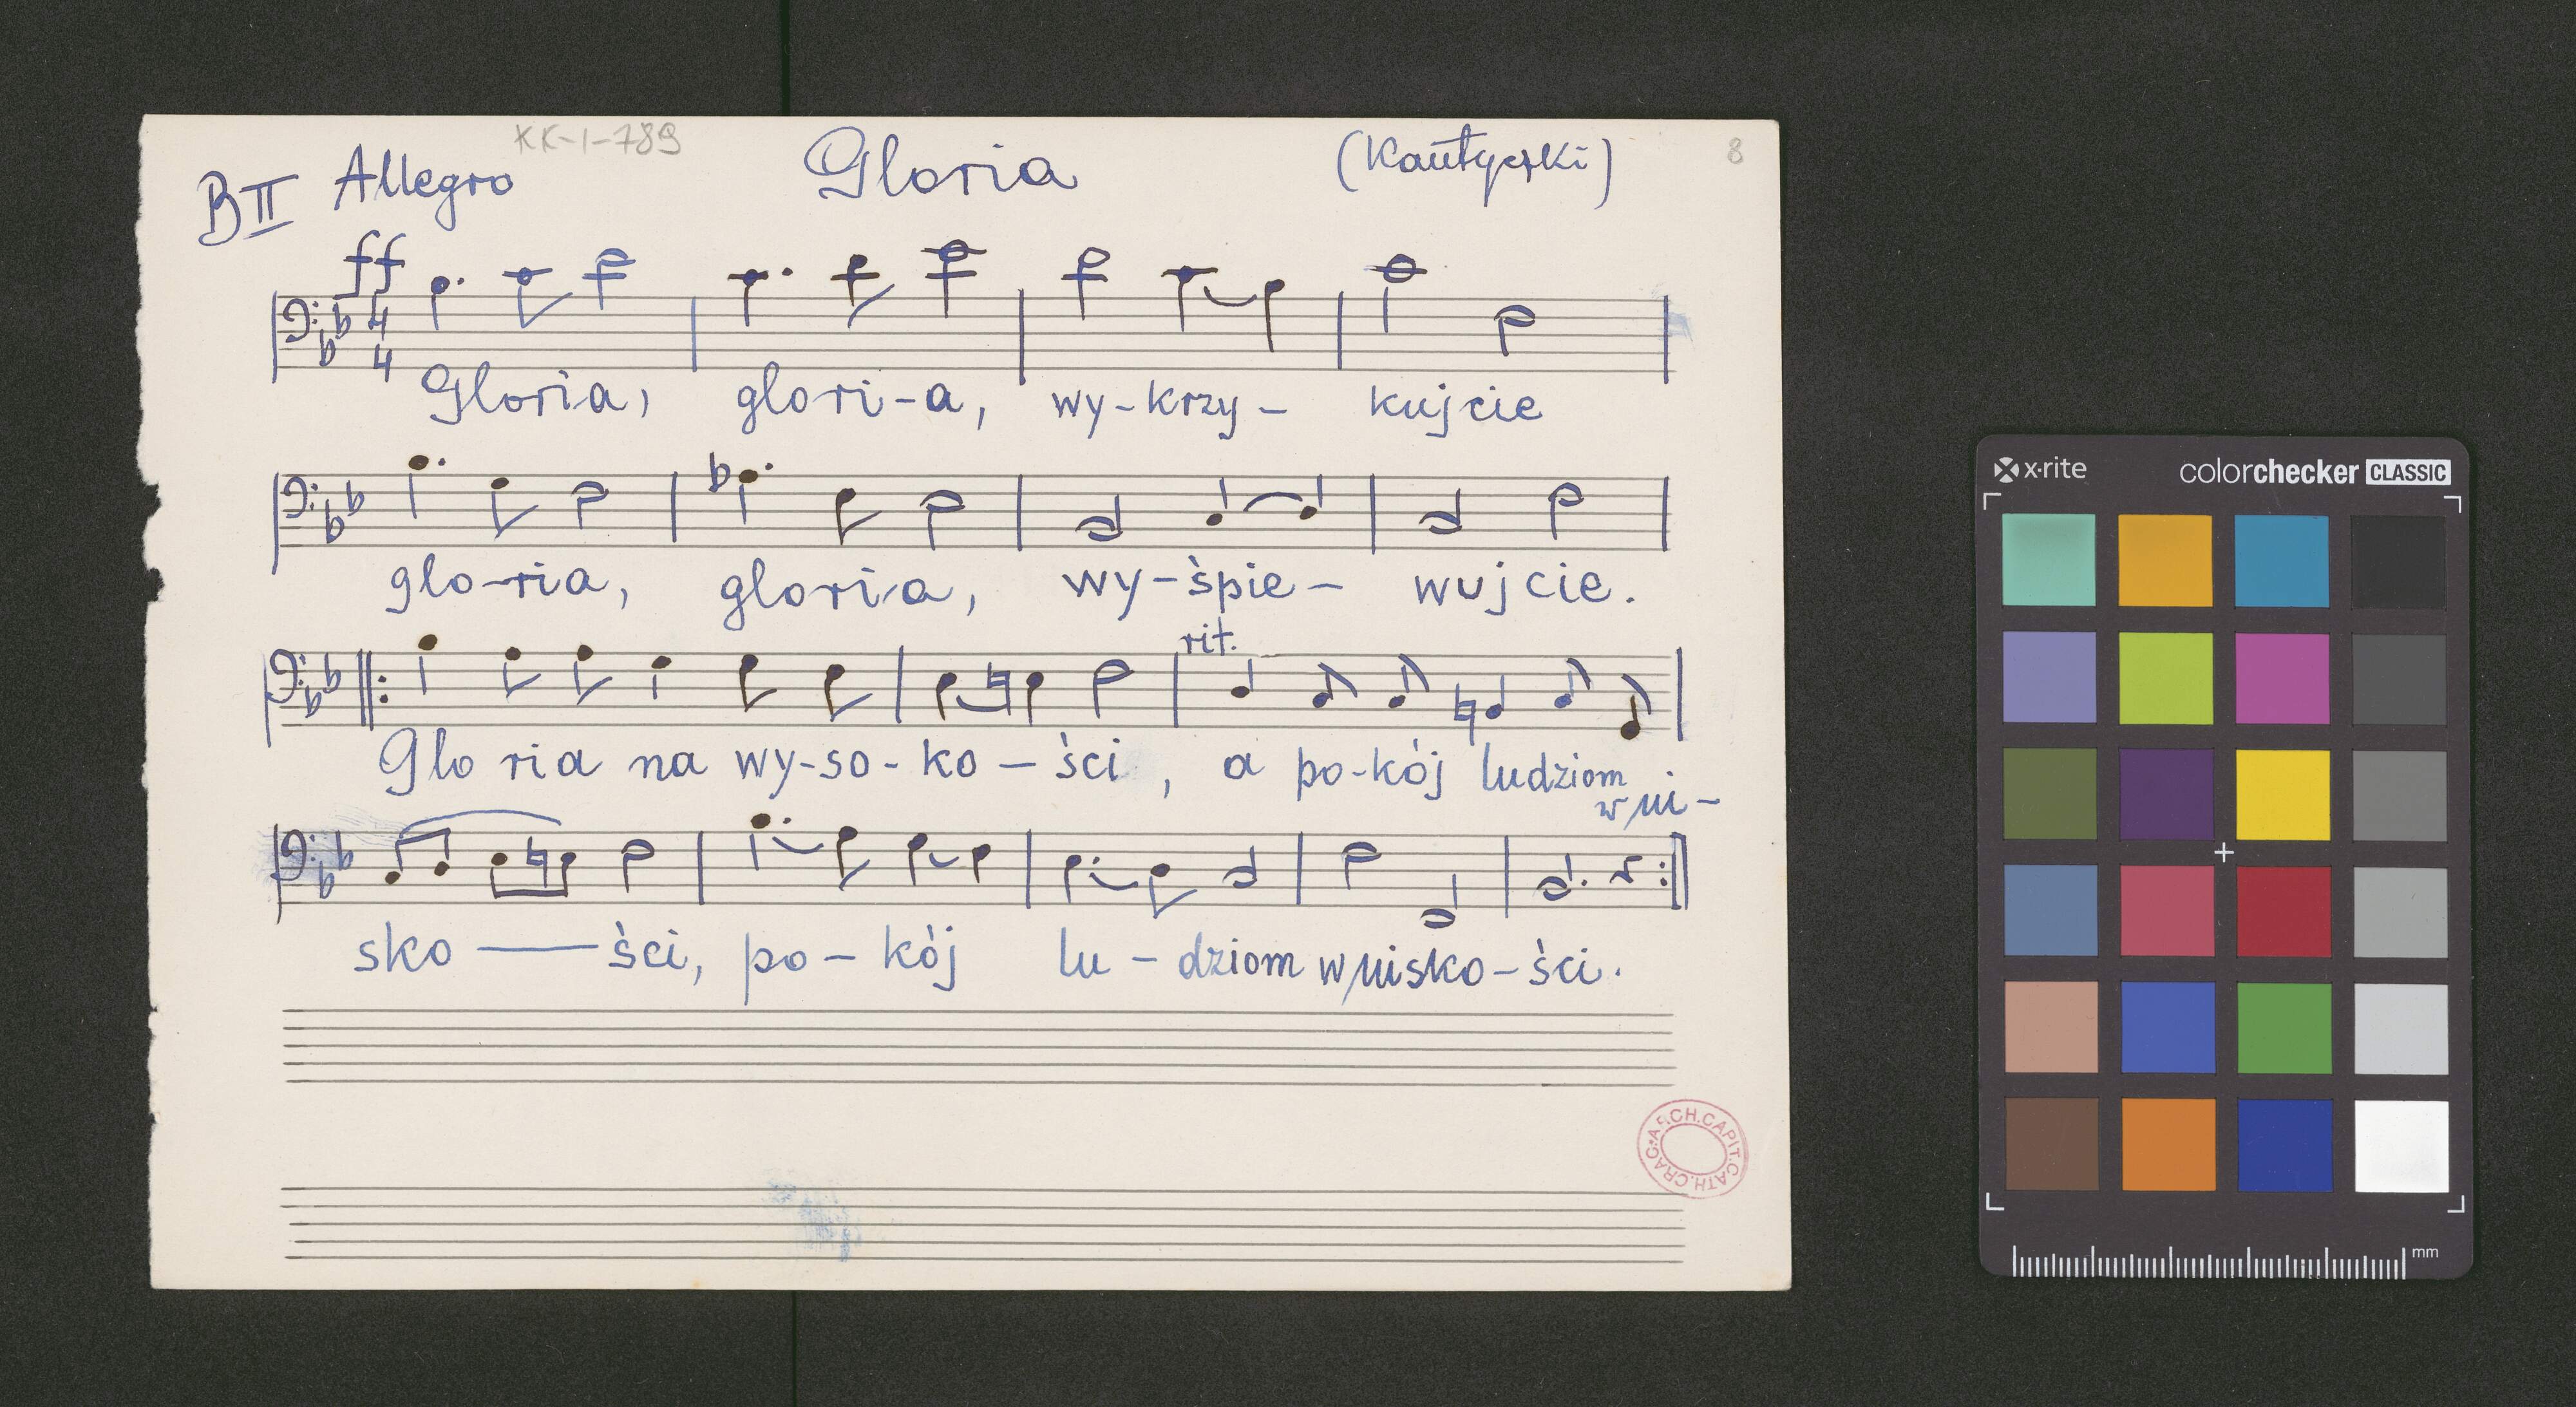 KK-1-789
8
B II Allegro Gloria (Kantyczki)
ff
4
4
Gloria, glori-a, wy-krzy- kujcie
glo-ria, gloria, wy-śpie- wujcie.
rit.
Glo ria na wy-so-ko-ści, a po-kój ludziom
w ni-
sko — ści, po-kój lu-dziom w nisko-ści.
ARCH.CAPIT.CATH.CRAC.
x·rite colorchecker CLASSIC
mm